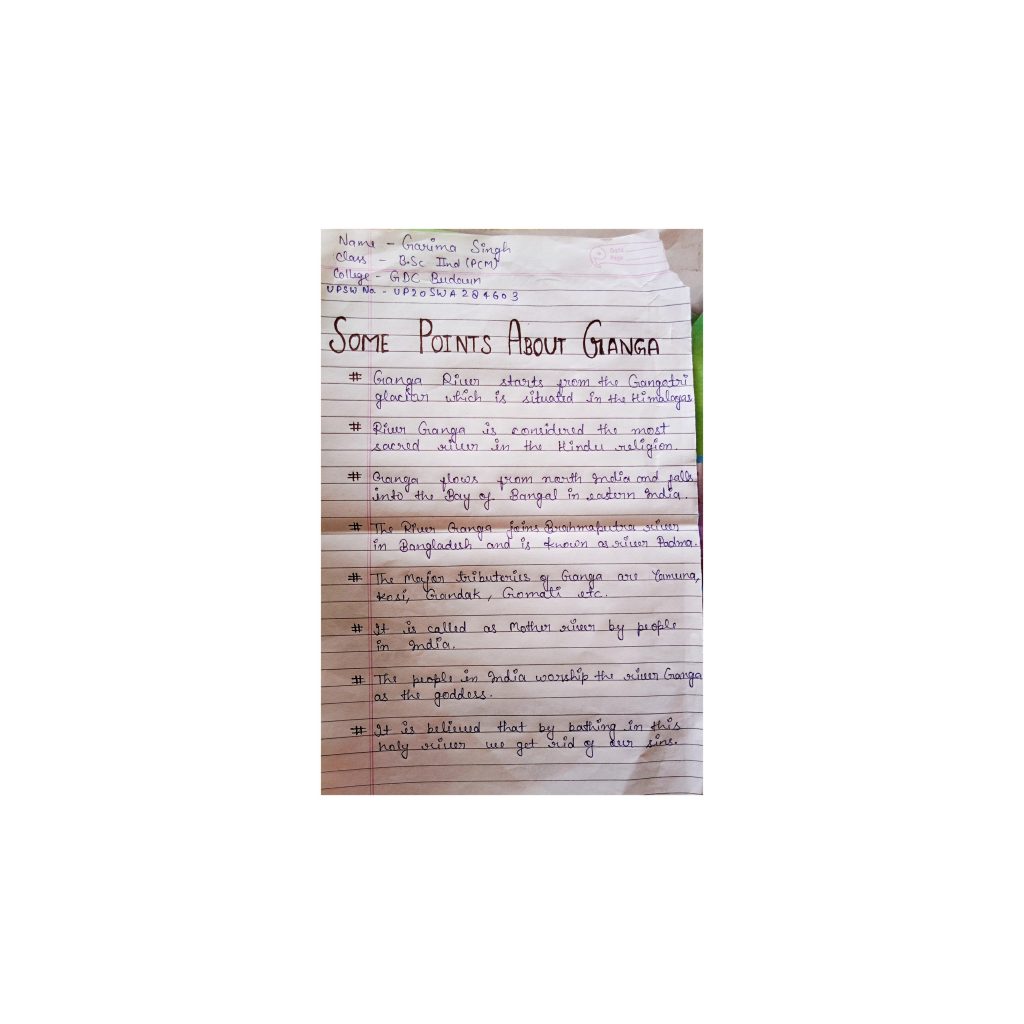 Name - Garima Singh
Class - B.Sc IInd (PCM)
College - GDC Budaun
UPSW No. - UP20SWA284603
Date
Page
SOME POINTS ABOUT GANGA
# Ganga River starts from the Gangotri
glaciar which is situated in the Himalayas
# River Ganga is considered the most
sacred river in the Hindu religion.
# Ganga flows from north India and falls
into the Bay of Bangal in eastern India.
# The River Ganga joins Brahmaputra river
in Bangladesh and is known as river Padma.
# The Major tributeries of Ganga are Yamuna,
Kosi, Gandak, Gomati etc.
# It is called as Mother river by people
in India.
# The people in India worship the river Ganga
as the goddess.
# It is believed that by bathing in this
holy river we get rid of our sins.